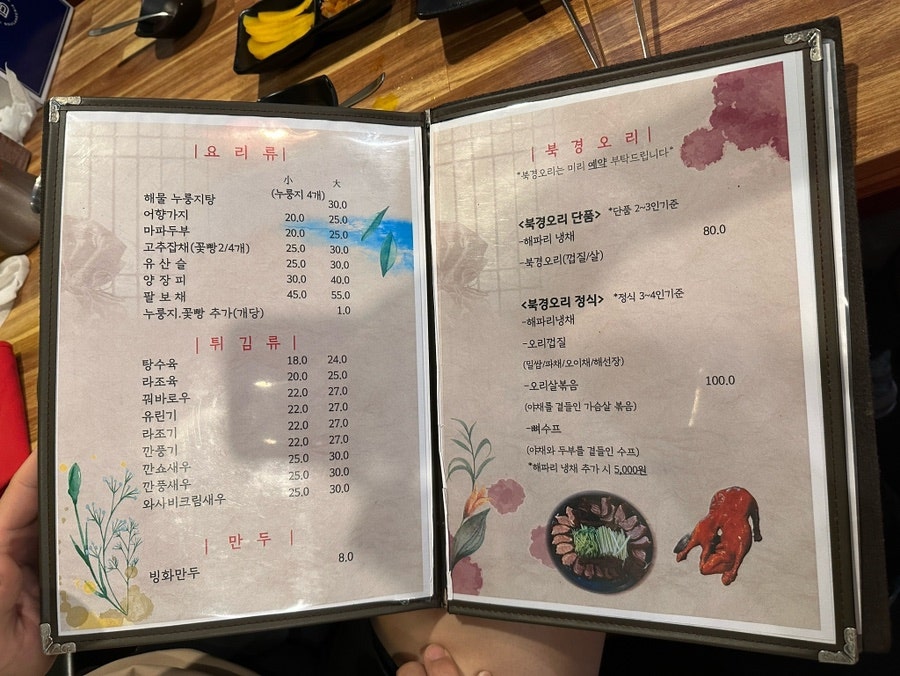 |요 리 류|
小 大
해물 누룽지탕 (누룽지 4개) 30.0
어향가지 20.0 25.0
마파두부 20.0 25.0
고추잡채(꽃빵2/4개) 25.0 30.0
유 산 슬 25.0 30.0
양 장 피 30.0 40.0
팔 보 채 45.0 55.0
누룽지.꽃빵 추가(개당) 1.0
| 튀 김 류 |
탕수육 18.0 24.0
라조육 20.0 25.0
꿔바로우 22.0 27.0
유린기 22.0 27.0
라조기 22.0 27.0
깐풍기 22.0 27.0
깐쇼새우 25.0 30.0
깐풍새우 25.0 30.0
와사비크림새우 25.0 30.0
| 만 두 |
빙화만두 8.0
| 북 경 오 리 |
*북경오리는 미리 예약 부탁드립니다*
<북경오리 단품> *단품 2~3인기준
-해파리 냉채 80.0
-북경오리(껍질/살)
<북경오리 정식> *정식 3~4인기준
-해파리냉채
-오리껍질
(밀쌈/파채/오이채/해선장)
-오리살볶음 100.0
(야채를 곁들인 가슴살 볶음)
-뼈수프
(야채와 두부를 곁들인 수프)
*해파리 냉채 추가 시 5,000원